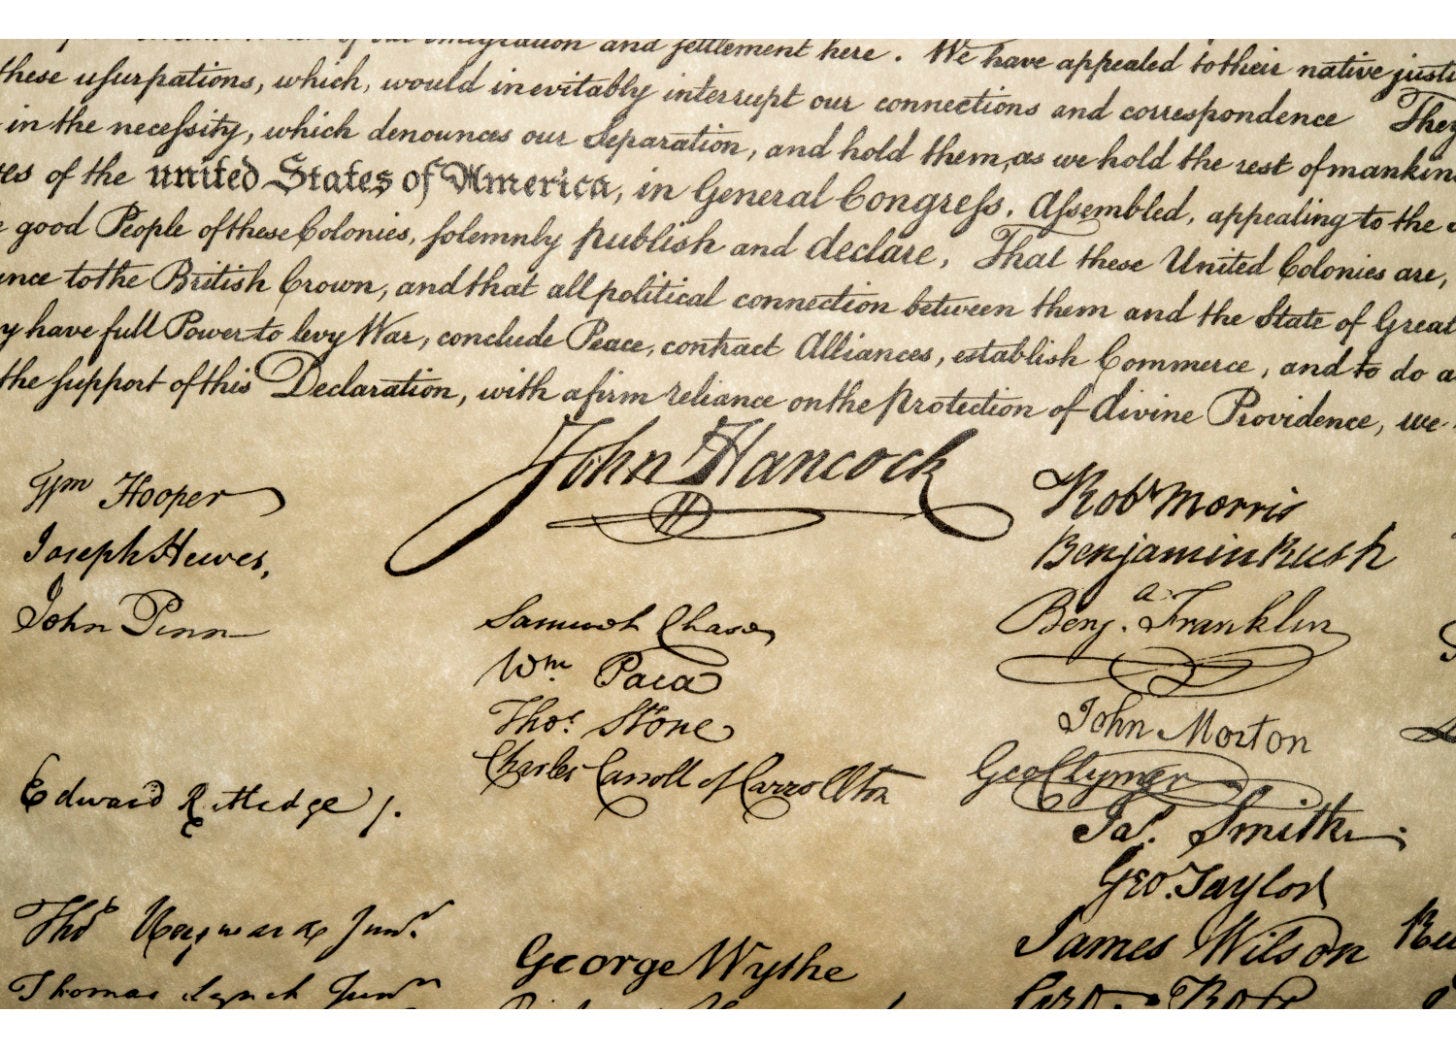 of our emigration and ſettlement here . We have appealed to their native justi
these uſurpations, which, would inevitably interrupt our connections and correspondence They
in the neceſsity, which denounces our Separation, and hold them, as we hold the rest of mankin
es of the united States of America, in General Congreſs, Aſsembled, appealing to the
good People of these Colonies, ſolemnly publish and declare, That these United Colonies are,
nce to the British Crown, and that all political connection between them and the State of Great
y have full Power to levy War, conclude Peace, contract Alliances, establish Commerce, and to do a
the ſupport of this Declaration, with a firm reliance on the protection of divine Providence, we
John Hancock
Wm Hooper
Joseph Hewes,
John Penn
Edward Rutledge /.
Thos Heyward Junr.
Thomas Lynch Junr
Samuel Chase
Wm. Paca
Thos. Stone
Charles Carroll of Carrollton
George Wythe
Robt Morris
Benjamin Rush
Benj. Franklin
John Morton
Geo Clymer
Jas. Smith
Geo. Taylor
James Wilson
Geo. Ross